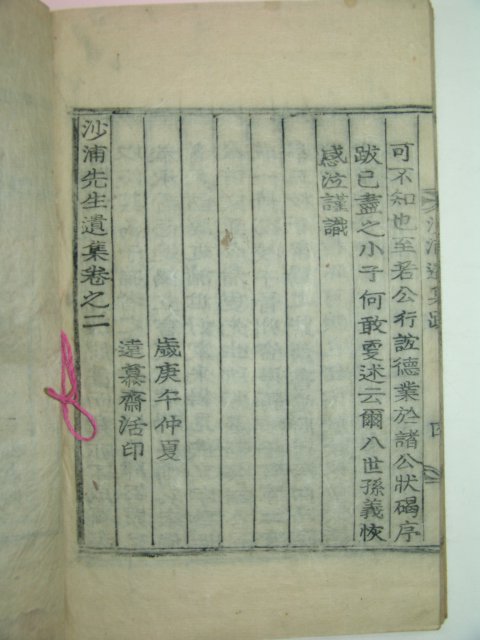 沙浦遺集跋
四
可不知也至若公行誼德業於諸公狀碣序
跋已盡之小子何敢更述云爾八世孫義恢
感泣謹識
歲庚午仲夏
遠慕齋活印
沙浦先生遺集卷之二